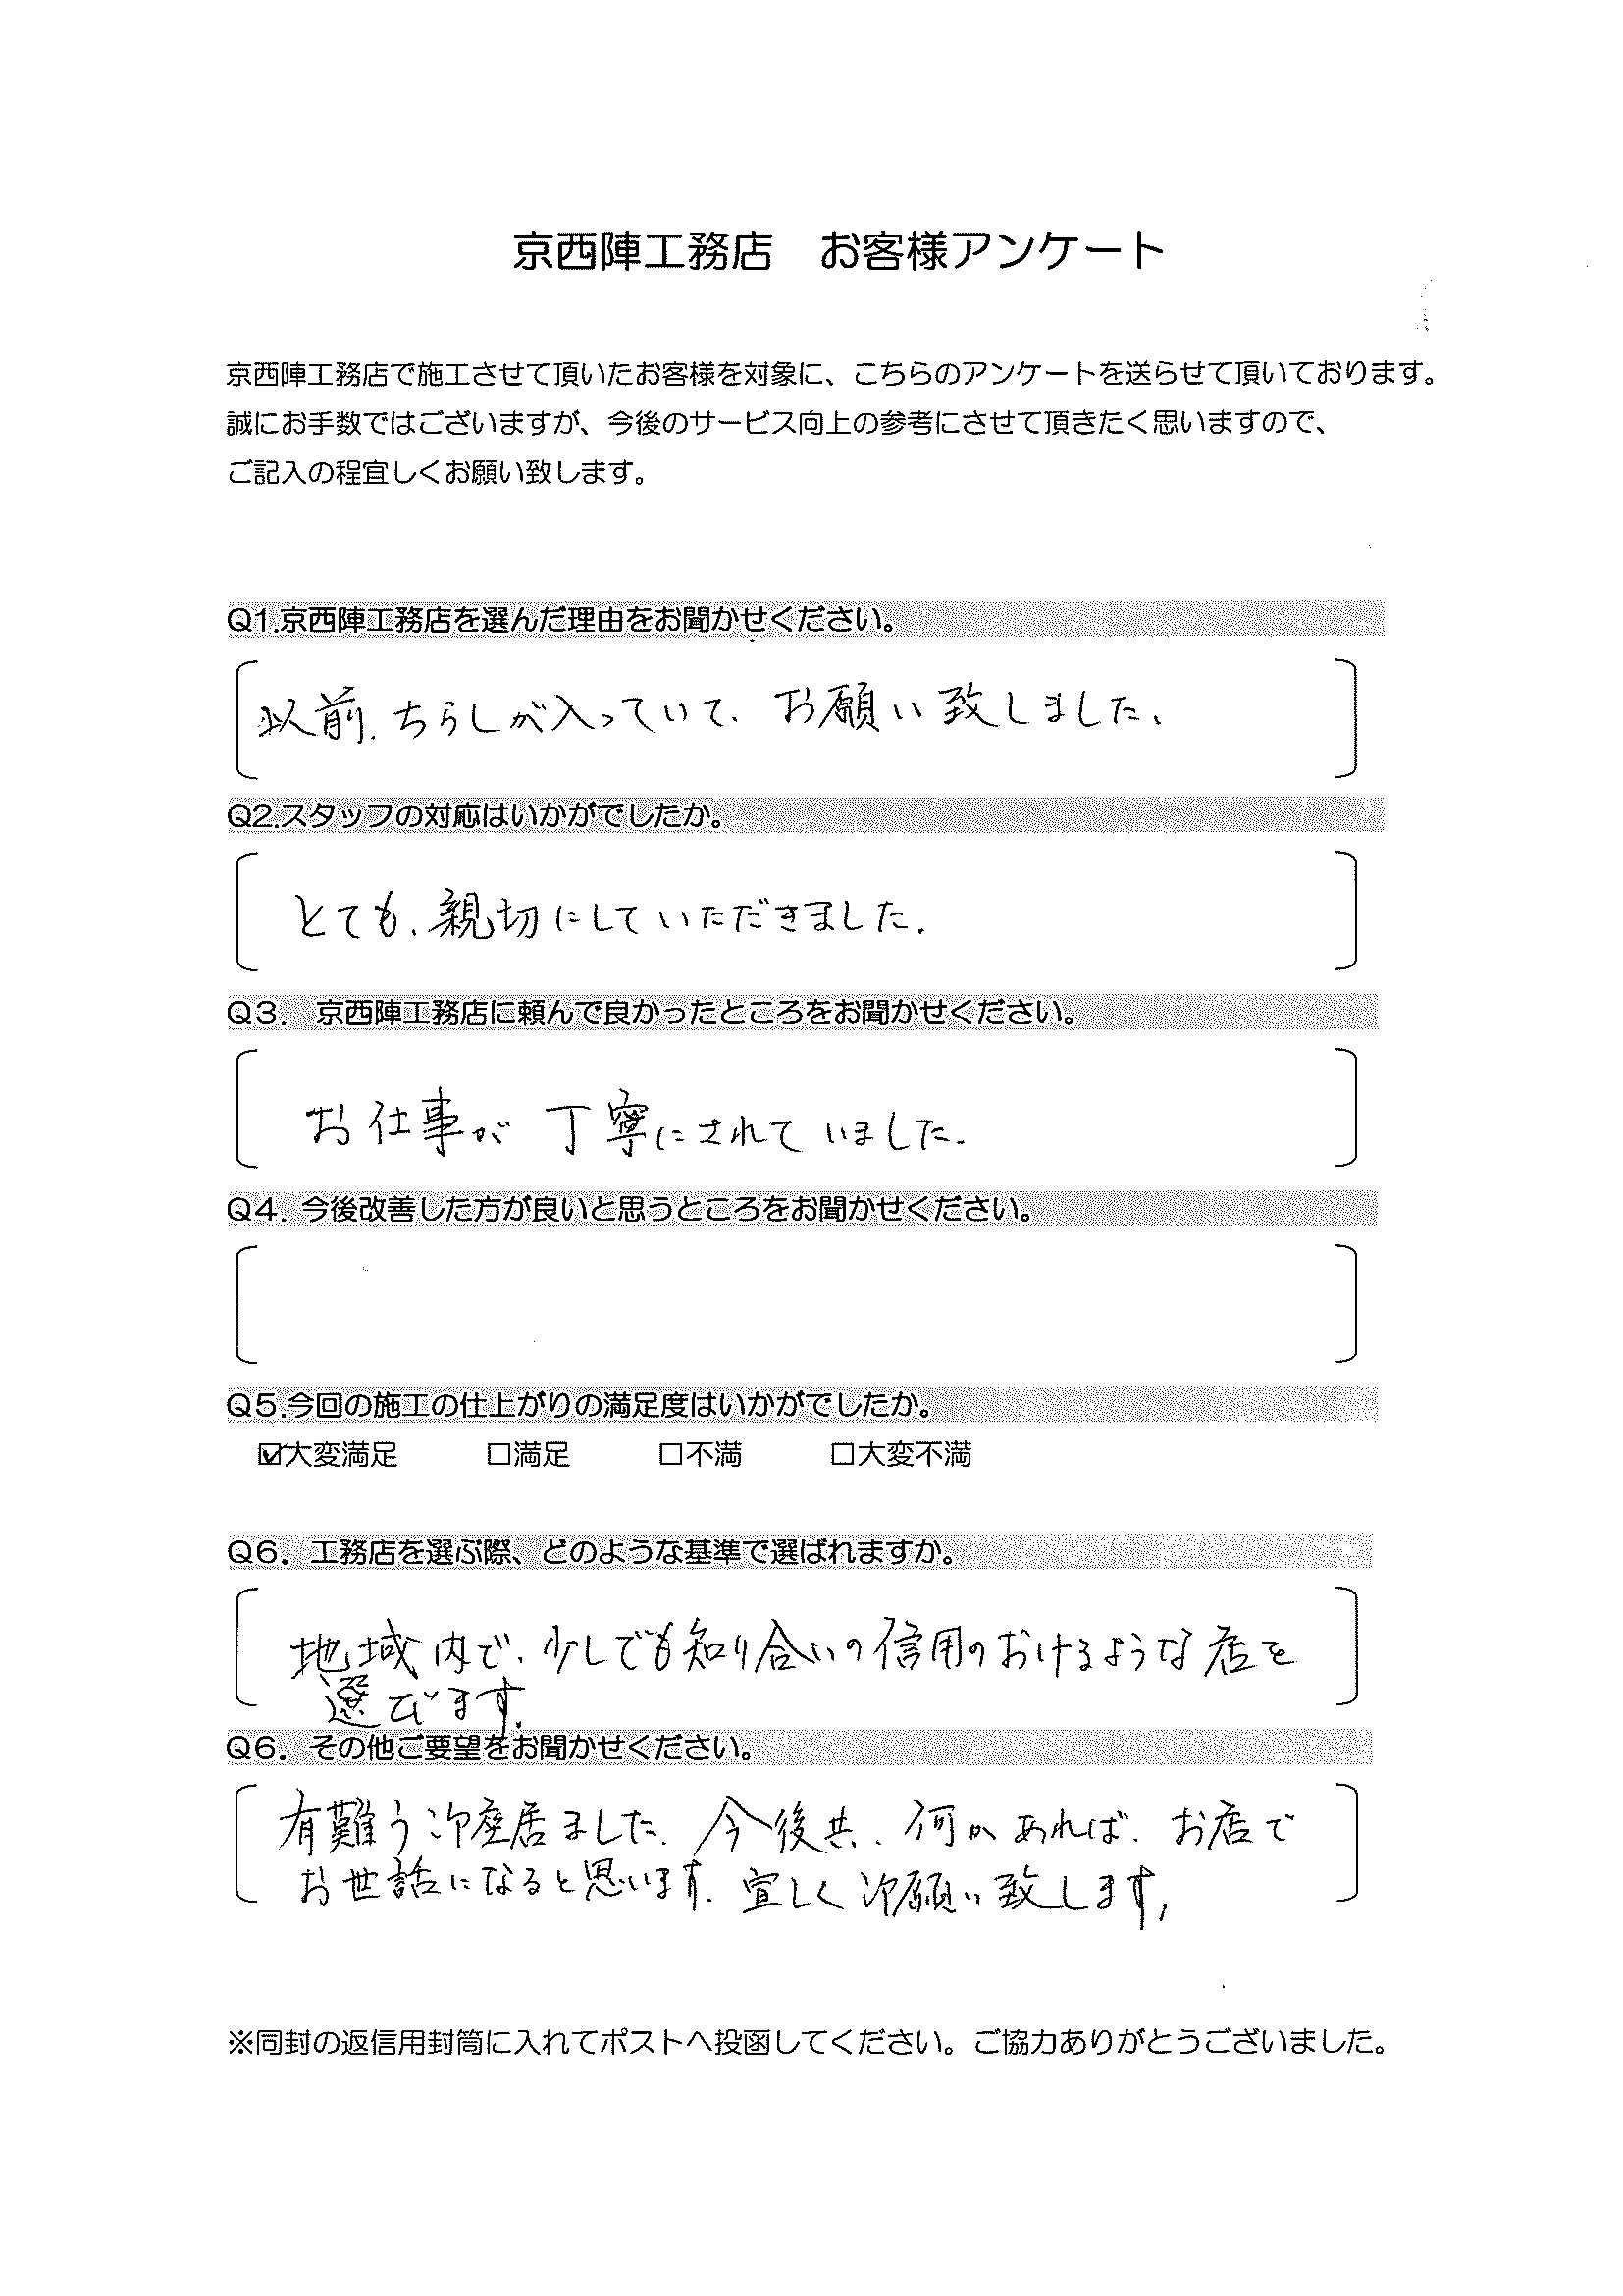 京西陣工務店　お客様アンケート
京西陣工務店で施工させて頂いたお客様を対象に、こちらのアンケートを送らせて頂いております。
誠にお手数ではございますが、今後のサービス向上の参考にさせて頂きたく思いますので、
ご記入の程宜しくお願い致します。
Q1.京西陣工務店を選んだ理由をお聞かせください。
以前、ちらしが入っていて、お願い致しました、
Q2.スタッフの対応はいかがでしたか。
とても、親切にしていただきました。
Q3.　京西陣工務店に頼んで良かったところをお聞かせください。
お仕事が丁寧にされていました。
Q4. 今後改善した方が良いと思うところをお聞かせください。
Q5.今回の施工の仕上がりの満足度はいかがでしたか。
☑大変満足　□満足　□不満　□大変不満
Q6. 工務店を選ぶ際、どのような基準で選ばれますか。
地域内で、少しでも知り合いの信用のおけるような店を
選びます。
Q6. その他ご要望をお聞かせください。
有難う御座居ました。今後共、何かあれば、お店で
お世話になると思います。宜しく御願い致します。
※同封の返信用封筒に入れてポストへ投函してください。ご協力ありがとうございました。